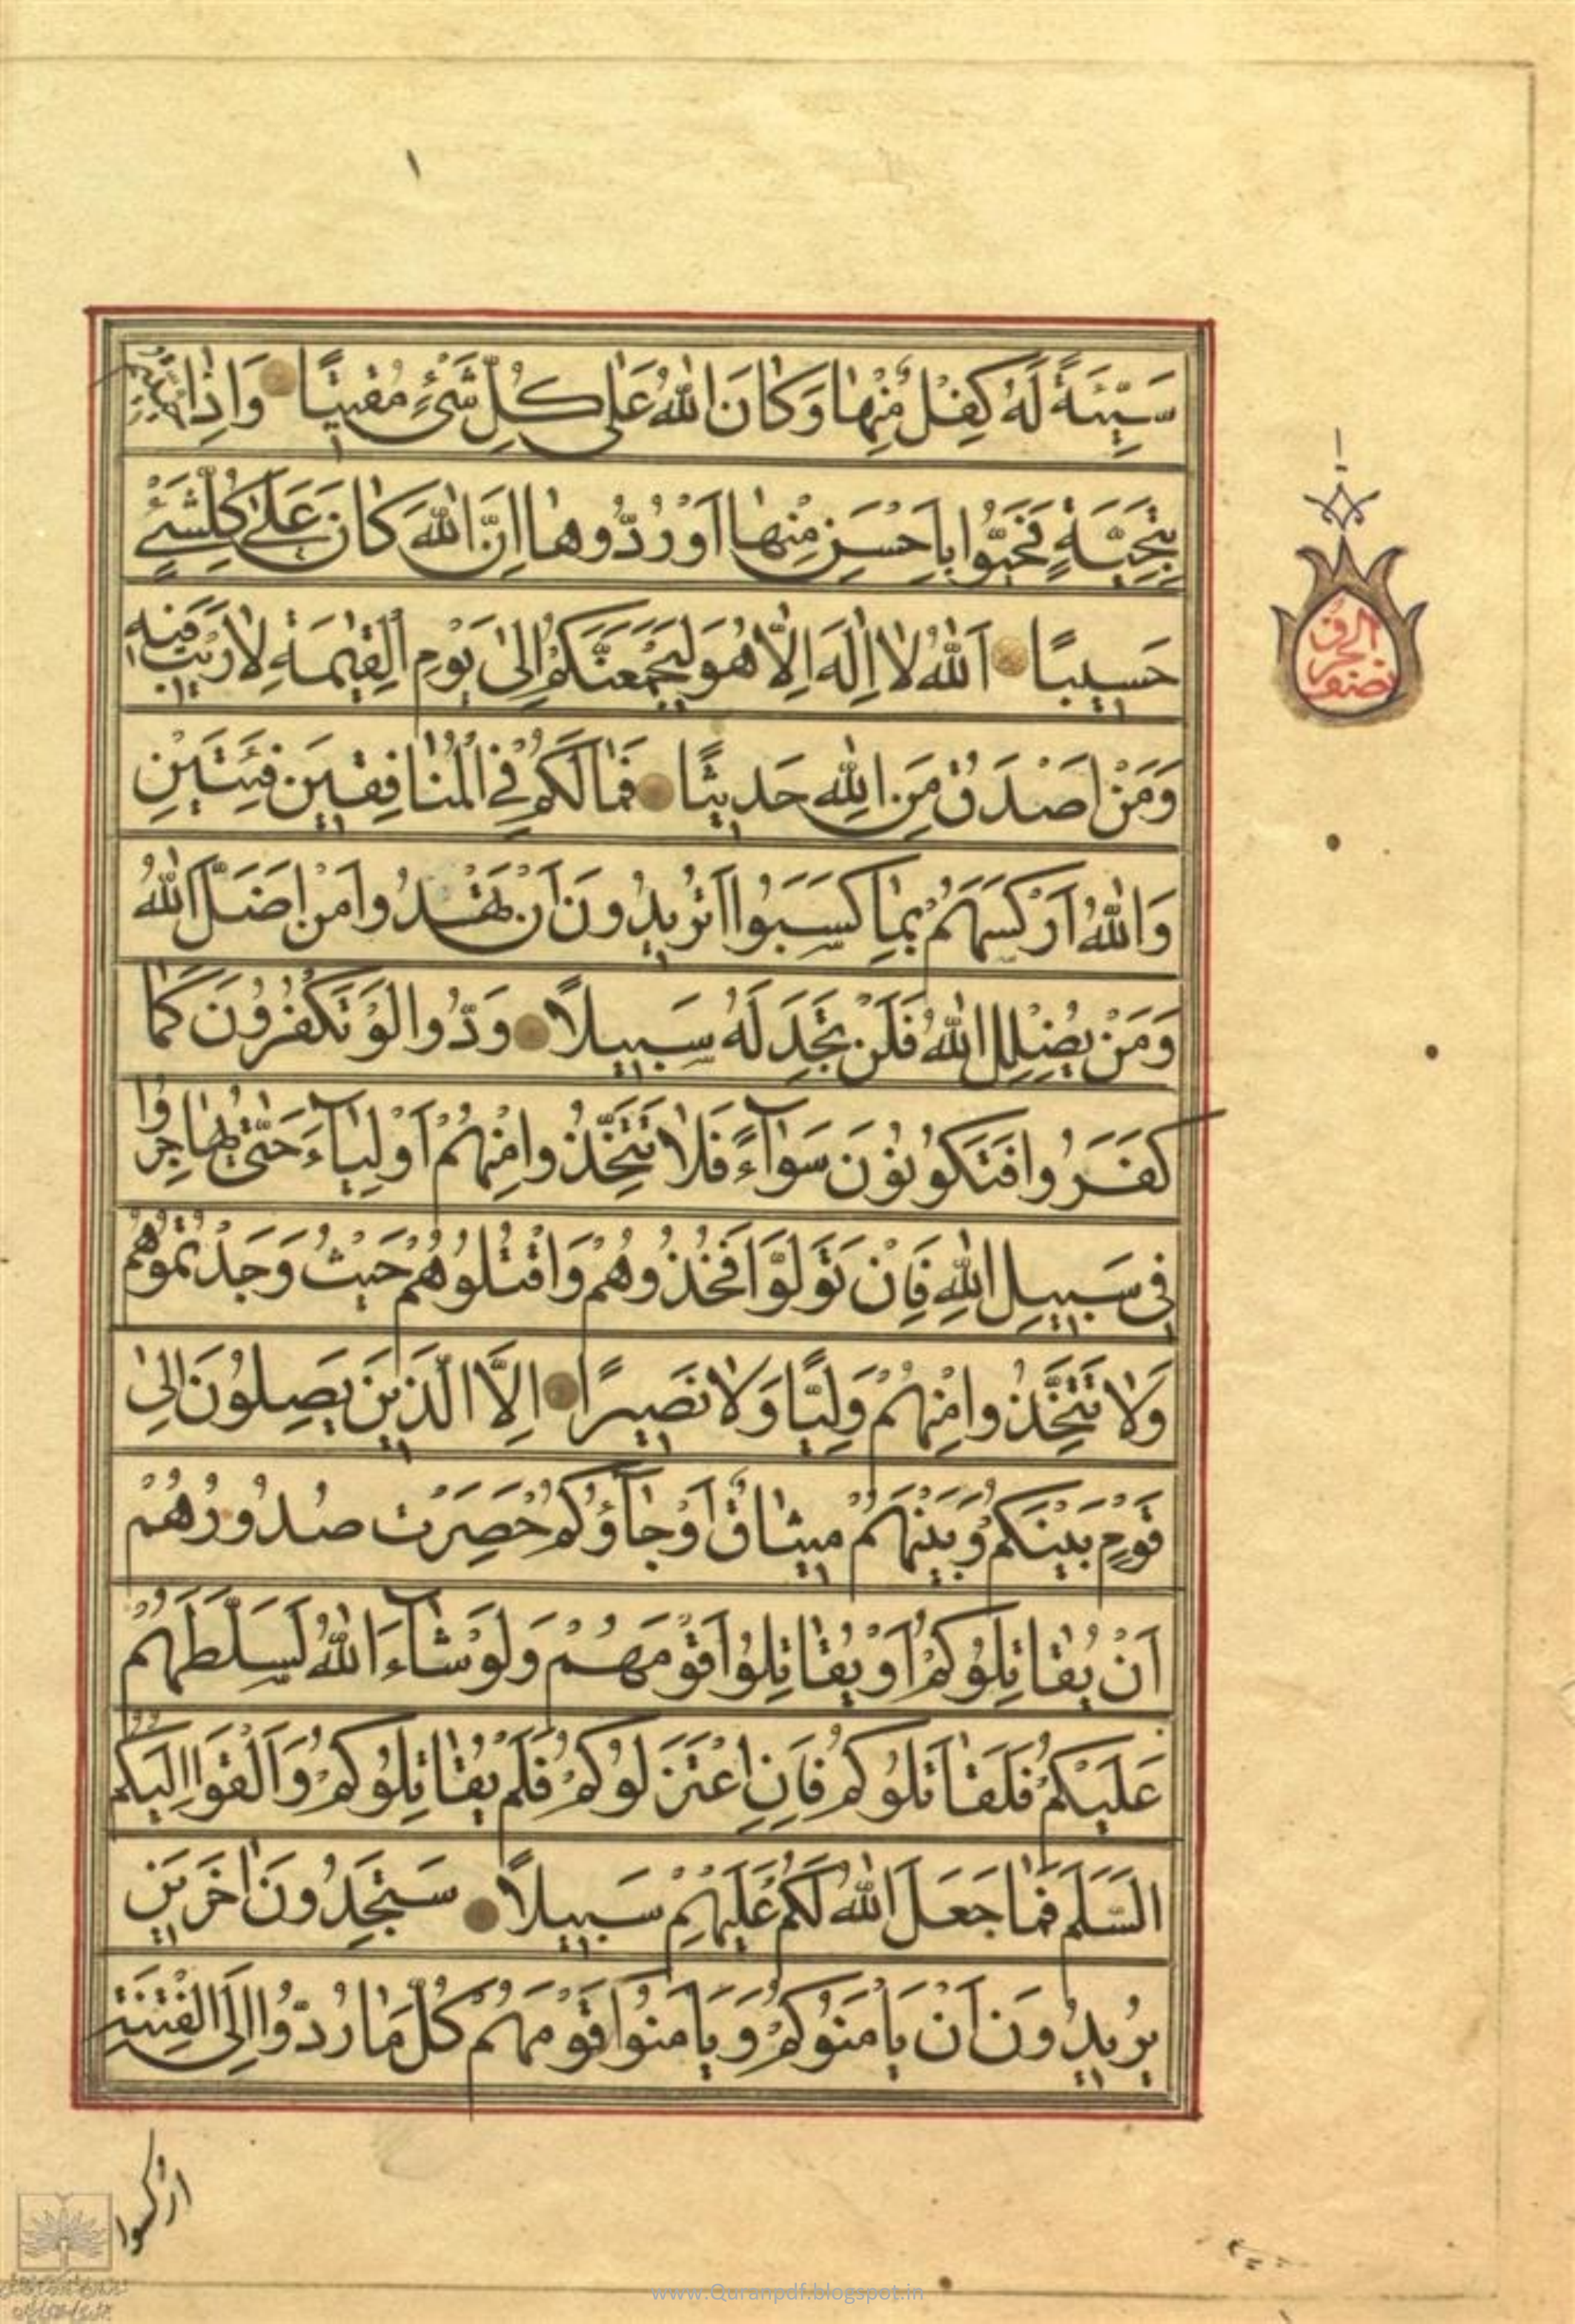 سَيِّئَةً لَهُ كِفْلٌ مِنْهَا وَكَانَ اللهُ عَلَى كُلِّ شَيْءٍ مُقِيتًا وَاِذَا حُيِّيتُمْ
بِتَحِيَّةٍ فَحَيُّوا بِاَحْسَنَ مِنْهَا اَوْ رُدُّوهَا اِنَّ اللهَ كَانَ عَلَى كُلِّ شَيْءٍ
حَسِيبًا اَللهُ لَا اِلَهَ اِلَّا هُوَ لَيَجْمَعَنَّكُمْ اِلَى يَوْمِ الْقِيمَةِ لَا رَيْبَ فِيهِ
وَمَنْ اَصْدَقُ مِنَ اللهِ حَدِيثًا فَمَا لَكُمْ فِي الْمُنَافِقِينَ فِئَتَيْنِ
وَاللهُ اَرْكَسَهُمْ بِمَا كَسَبُوا اَتُرِيدُونَ اَنْ تَهْدُوا مَنْ اَضَلَّ اللهُ
وَمَنْ يُضْلِلِ اللهُ فَلَنْ تَجِدَ لَهُ سَبِيلًا وَدُّوا لَوْ تَكْفُرُونَ كَمَا
كَفَرُوا فَتَكُونُونَ سَوَآءً فَلَا تَتَّخِذُوا مِنْهُمْ اَوْلِيَآءَ حَتَّى يُهَاجِرُوا
فِي سَبِيلِ اللهِ فَاِنْ تَوَلَّوْا فَخُذُوهُمْ وَاقْتُلُوهُمْ حَيْثُ وَجَدْتُمُوهُمْ
وَلَا تَتَّخِذُوا مِنْهُمْ وَلِيًّا وَلَا نَصِيرًا اِلَّا الَّذِينَ يَصِلُونَ اِلَى
قَوْمٍ بَيْنَكُمْ وَبَيْنَهُمْ مِيثَاقٌ اَوْ جَآؤُكُمْ حَصِرَتْ صُدُورُهُمْ
اَنْ يُقَاتِلُوكُمْ اَوْ يُقَاتِلُوا قَوْمَهُمْ وَلَوْ شَآءَ اللهُ لَسَلَّطَهُمْ
عَلَيْكُمْ فَلَقَاتَلُوكُمْ فَاِنِ اعْتَزَلُوكُمْ فَلَمْ يُقَاتِلُوكُمْ وَاَلْقَوْا اِلَيْكُمُ
السَّلَمَ فَمَا جَعَلَ اللهُ لَكُمْ عَلَيْهِمْ سَبِيلًا سَتَجِدُونَ اٰخَرِينَ
يُرِيدُونَ اَنْ يَاْمَنُوكُمْ وَيَاْمَنُوا قَوْمَهُمْ كُلَّ مَا رُدُّوا اِلَى الْفِتْنَةِ
اُرْكِسُوا
www.Quranpdf.blogspot.in